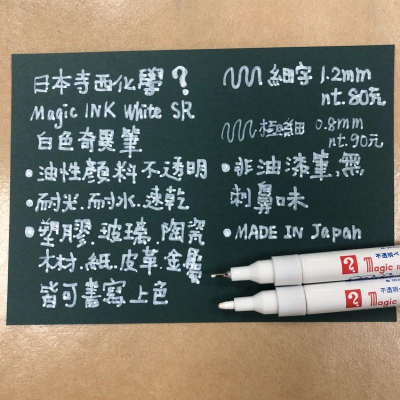 日本寺西化學?
Magic INK White SR
白色奇異筆
•油性顏料不透明
•耐光.耐水.速乾
•塑膠.玻璃.陶瓷
木材.紙.皮革.金屬
皆可書寫上色
細字 1.2mm
nt.80元
極細 0.8mm
nt.90元
•非油漆筆,無
刺鼻味
•MADE IN Japan
? magic
不透明
? Magic
不透明